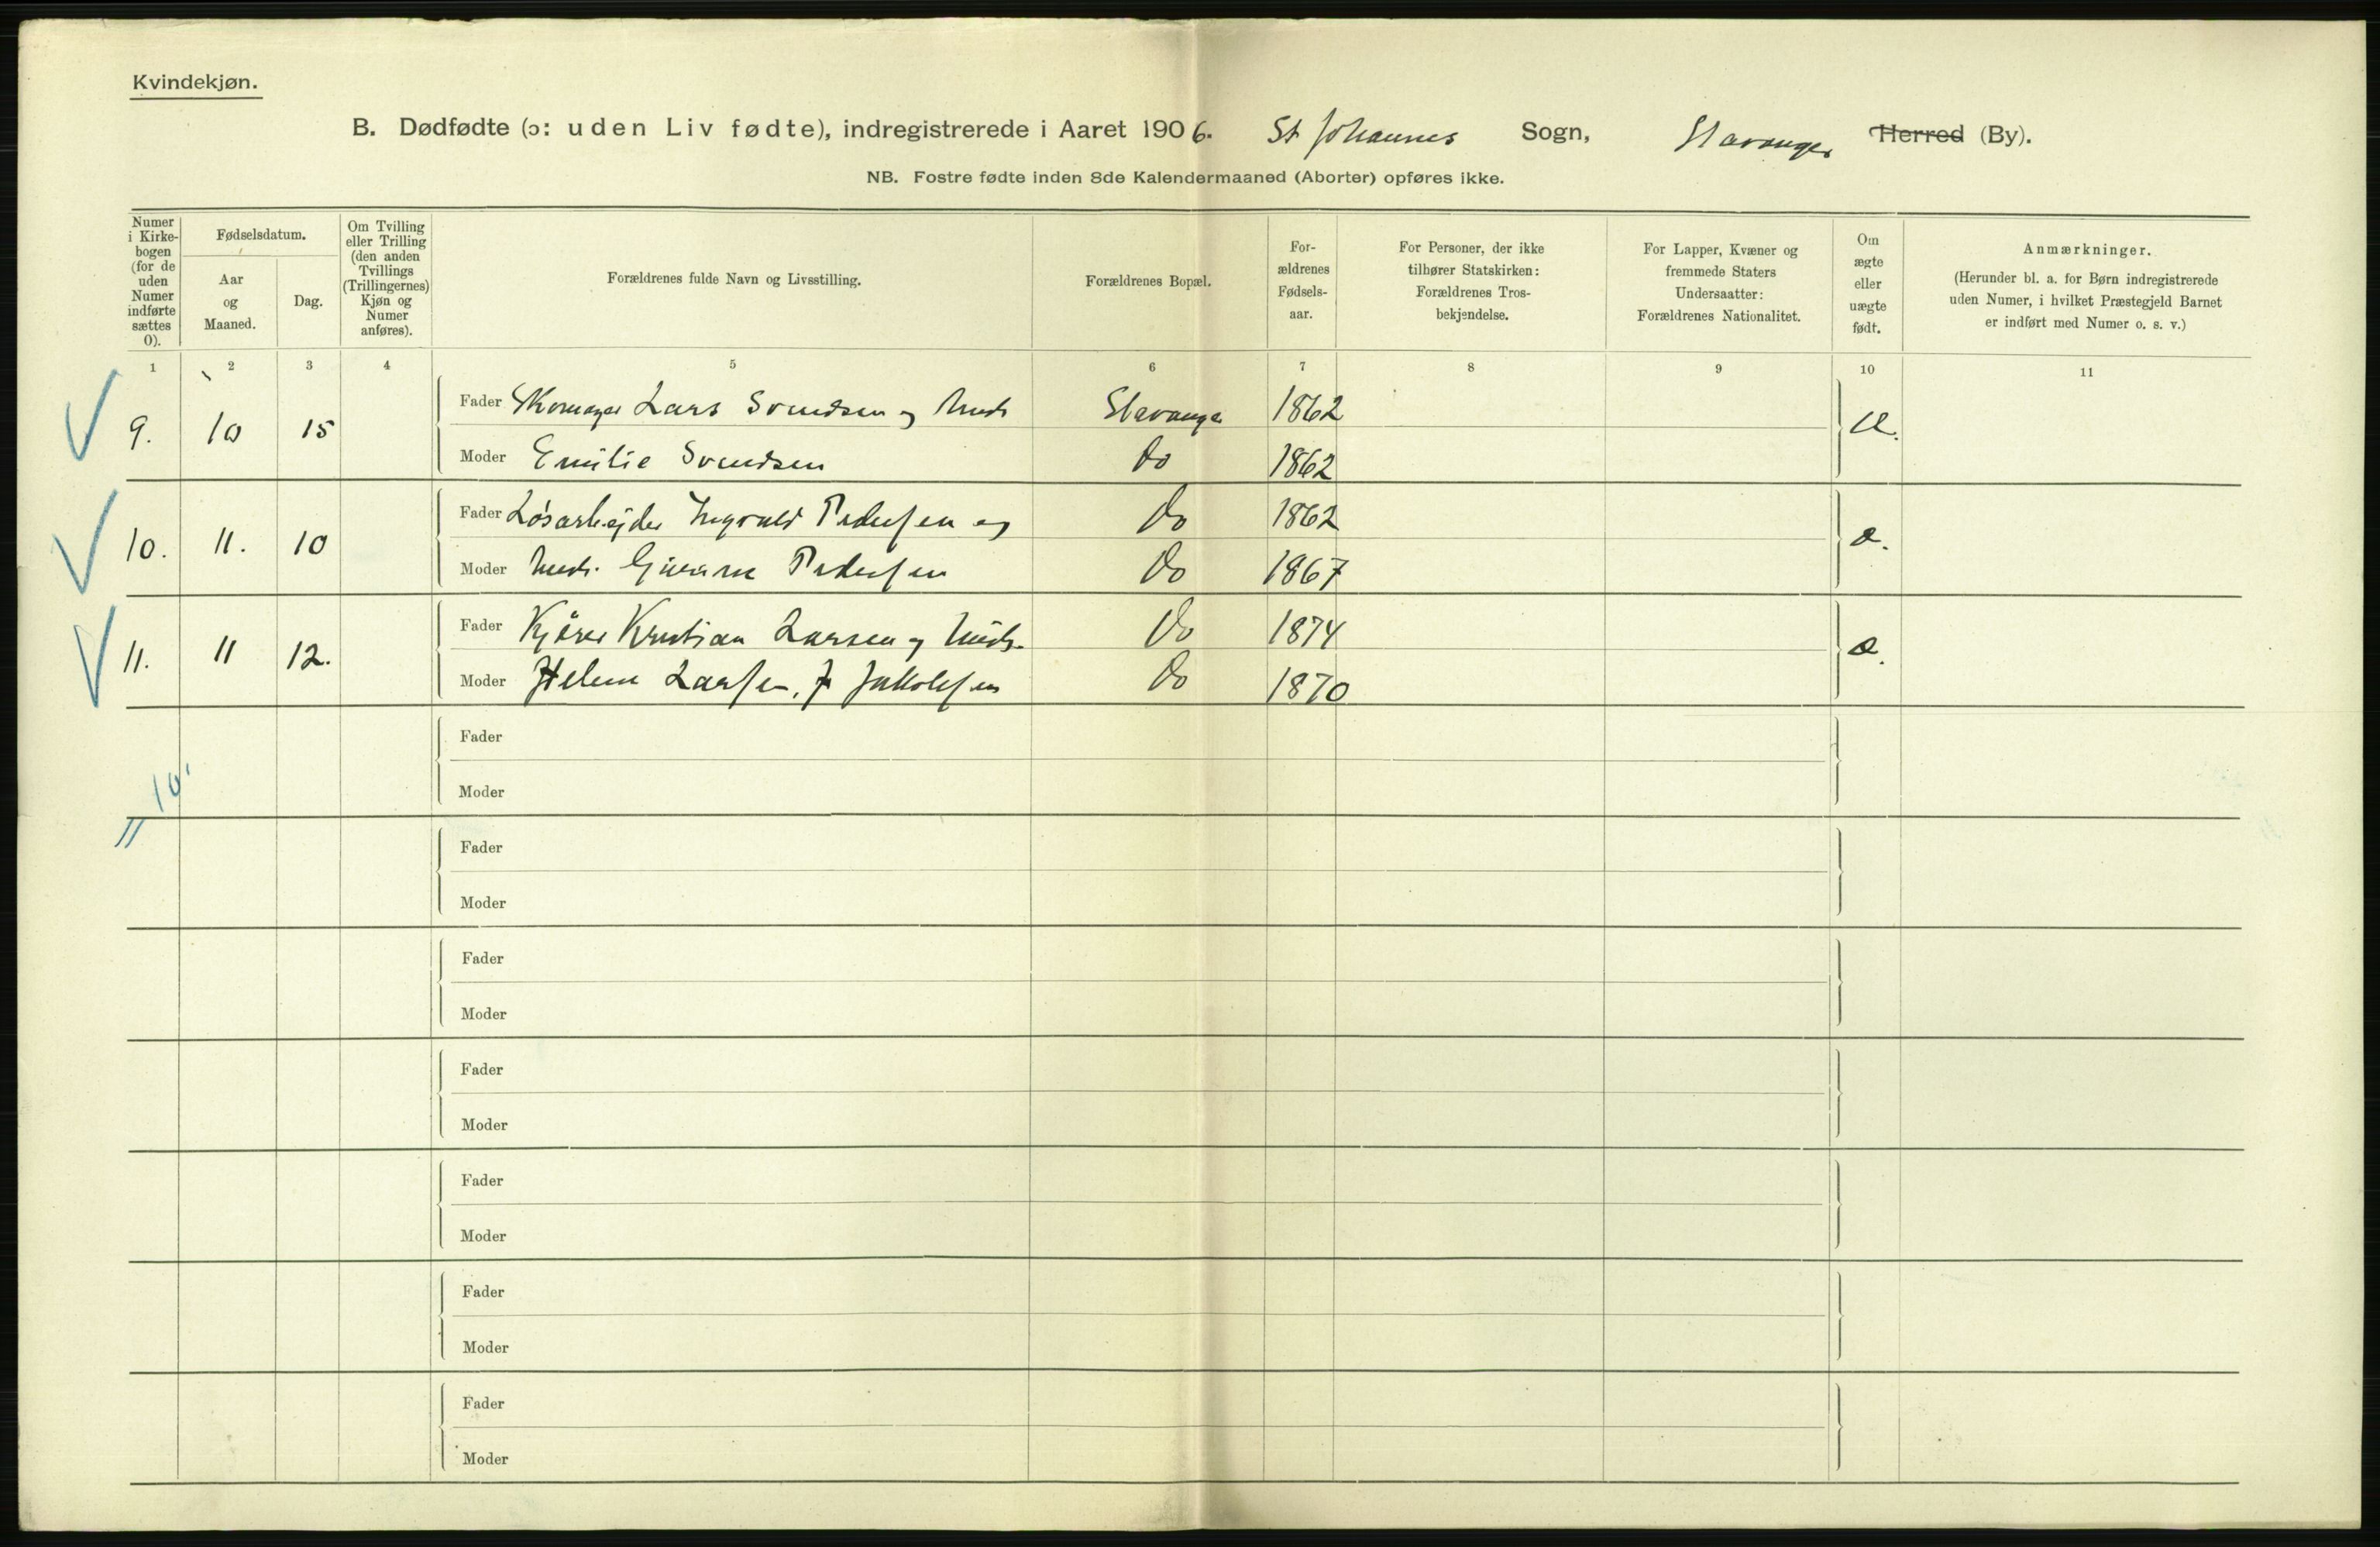 Kvindekjøn.
B. Dødfødte (ɔ: uden Liv fødte), indregistrerede i Aaret 1906. St Johannes Sogn, Stavanger Herred (By).
NB. Fostre fødte inden 8de Kalendermaaned (Aborter) opføres ikke.
Numer i Kirkebogen (for de uden Numer indførte sættes 0).
Fødselsdatum.
Aar og Maaned.
Dag.
Om Tvilling eller Trilling (den anden Tvillings (Trillingernes) Kjøn og Numer anføres).
Forældrenes fulde Navn og Livsstilling.
Forældrenes Bopæl.
For-ældrenes Fødsels-aar.
For Personer, der ikke tilhører Statskirken: Forældrenes Tros-bekjendelse.
For Lapper, Kvæner og fremmede Staters Undersaatter: Forældrenes Nationalitet.
Om ægte eller uægte født.
Anmærkninger.
(Herunder bl. a. for Børn indregistrerede uden Numer, i hvilket Præstegjeld Barnet er indført med Numer o. s. v.)
1 2 3 4 5 6 7 8 9 10 11
9. 10 15 Fader Skomager Lars Svendsen og Stavanger 1862 æ.
Moder Emilie Svendsen do 1862
10. 11. 10 Fader Løsarbejder Ingvald Pedersen og Do 1862 æ.
Moder Pedersen Do 1867
11. 11 12. Fader Kjører Kristian Larsen og Do 1874 æ.
Moder Helene Larsen, f Jakobsen Do 1870
Fader
10
Moder
Fader
Moder
Fader
Moder
Fader
Moder
Fader
Moder
Fader
Moder
Fader
Moder